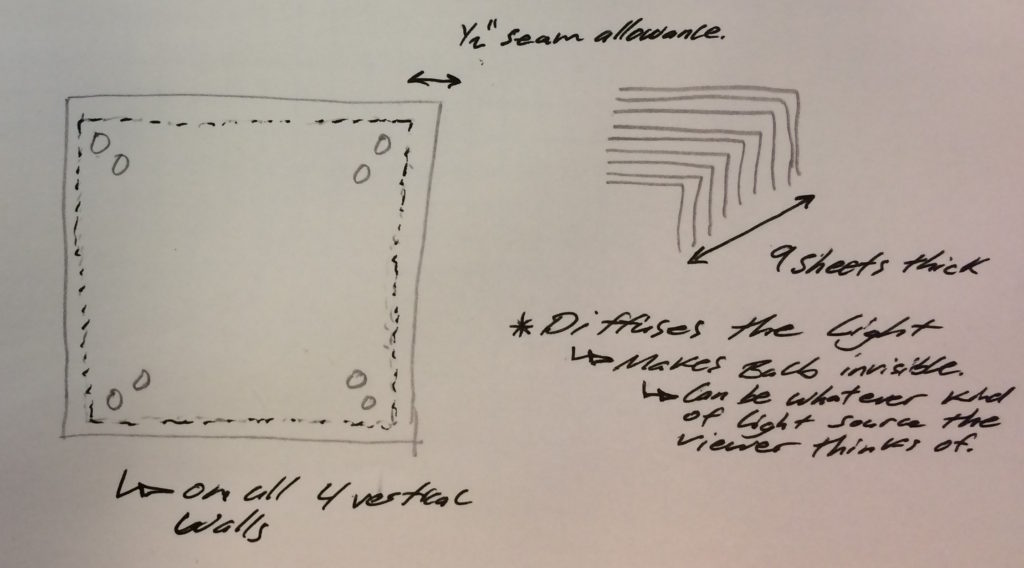 1/2" seam allowance.
9 sheets thick
* Diffuses the Light
↳ Makes Bulb invisible.
↳ Can be whatever kind
of light source the
viewer thinks of.
↳ on all 4 vertical
walls